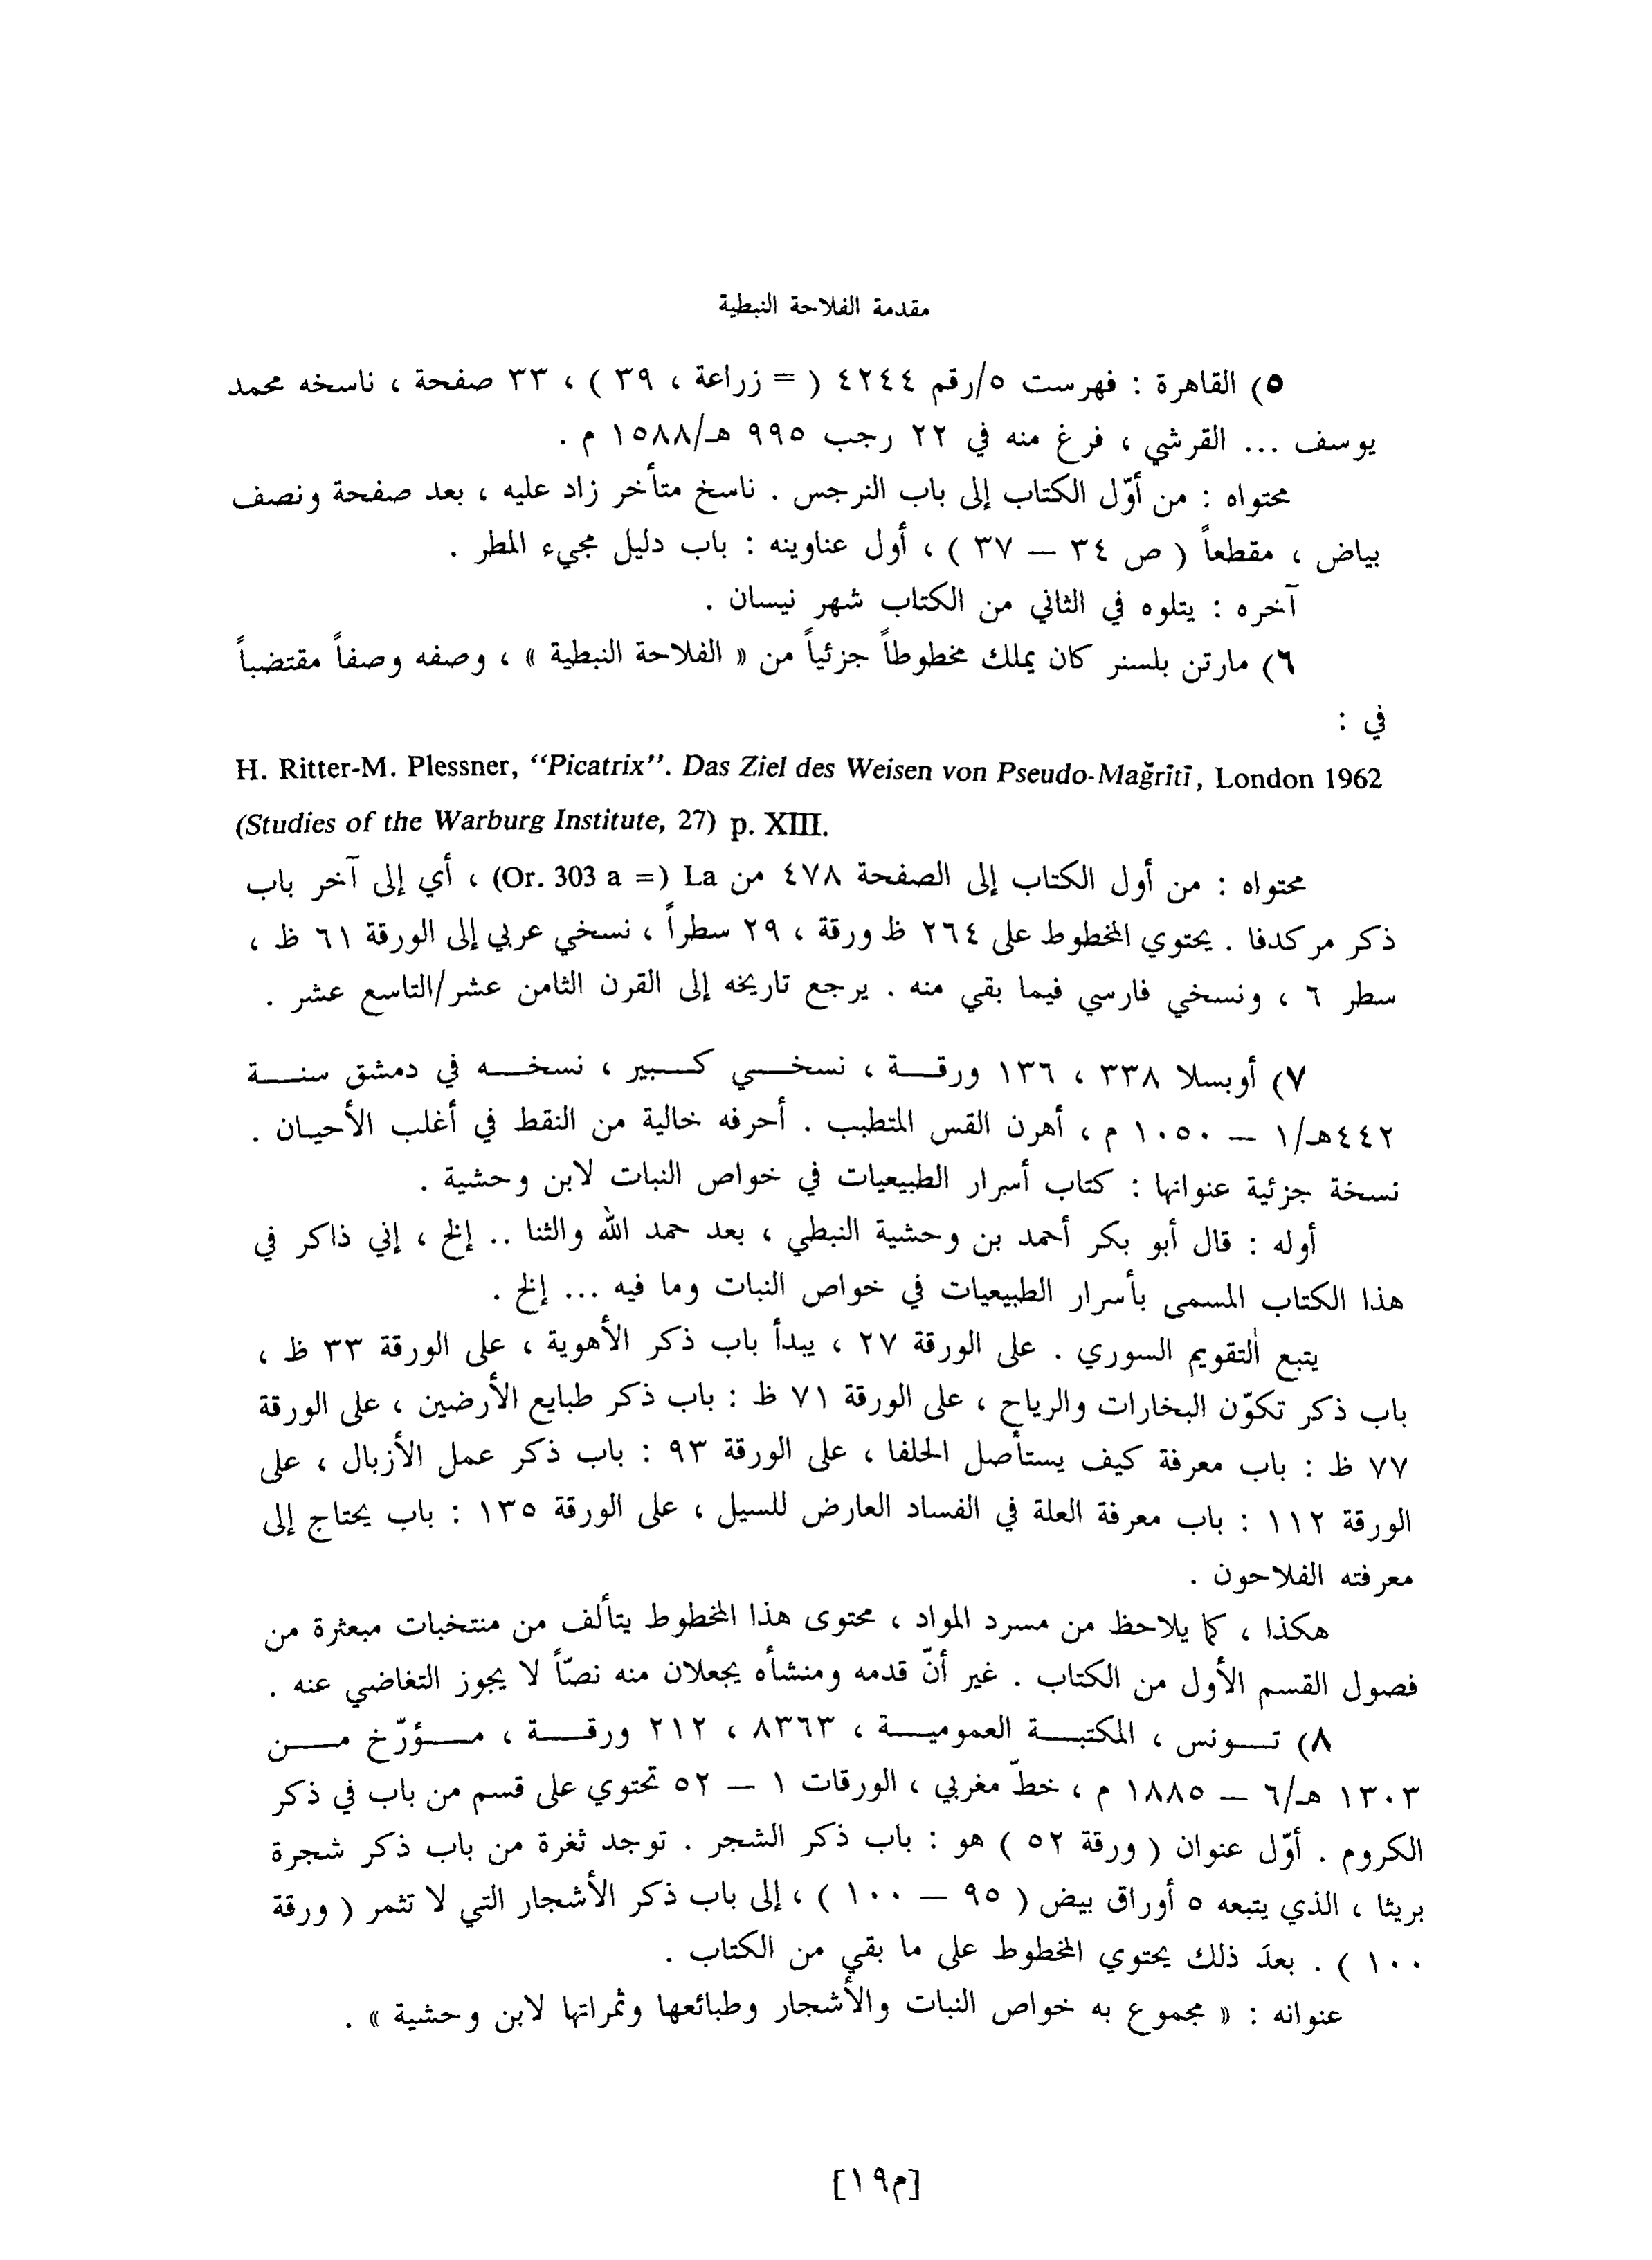 مقدمة الفلاحة النبطية
٥) القاهرة : فهرست ٥/رقم ٤٢٤٤ ( = زراعة ، ٣٩ ) ، ٣٣ صفحة ، ناسخه محمد
يوسف ... القرشي ، فرغ منه في ٢٢ رجب ٩٩٥ هـ/١٥٨٨ م .
محتواه : من أوّل الكتاب إلى باب النرجس . ناسخ متأخر زاد عليه ، بعد صفحة ونصف
بياض ، مقطعاً ( ص ٣٤ — ٣٧ ) ، أول عناوينه : باب دليل مجيء المطر .
آخره : يتلوه في الثاني من الكتاب شهر نيسان .
٦) مارتن بلسنر كان يملك مخطوطاً جزئياً من « الفلاحة النبطية » ، وصفه وصفاً مقتضباً
في :
H. Ritter-M. Plessner, “Picatrix”. Das Ziel des Weisen von Pseudo-Maǧrīṭī, London 1962
(Studies of the Warburg Institute, 27) p. XIII.
محتواه : من أول الكتاب إلى الصفحة ٤٧٨ من La (= Or. 303 a) ، أي إلى آخر باب
ذكر مركدفا . يحتوي المخطوط على ٢٦٤ ظ ورقة ، ٢٩ سطراً ، نسخي عربي إلى الورقة ٦١ ظ ،
سطر ٦ ، ونسخي فارسي فيما بقي منه . يرجع تاريخه إلى القرن الثامن عشر/التاسع عشر .
٧) أوبسلا ٣٣٨ ، ١٣٦ ورقـــة ، نسخـــي كـــبير ، نسخـــه في دمشق سنـــة
٤٤٢هـ/١ — ١٠٥٠ م ، أهرن القس المتطبب . أحرفه خالية من النقط في أغلب الأحيـان .
نسخة جزئية عنوانها : كتاب أسرار الطبيعيات في خواص النبات لابن وحشية .
أوله : قال أبو بكر أحمد بن وحشية النبطي ، بعد حمد الله والثنا .. إلخ ، إني ذاكر في
هذا الكتاب المسمى بأسرار الطبيعيات في خواص النبات وما فيه ... إلخ .
يتبع التقويم السوري . على الورقة ٢٧ ، يبدأ باب ذكر الأهوية ، على الورقة ٣٣ ظ ،
باب ذكر تكوّن البخارات والرياح ، على الورقة ٧١ ظ : باب ذكر طبايع الأرضين ، على الورقة
٧٧ ظ : باب معرفة كيف يستأصل الحلفا ، على الورقة ٩٣ : باب ذكر عمل الأزبال ، على
الورقة ١١٢ : باب معرفة العلة في الفساد العارض للسيل ، على الورقة ١٣٥ : باب يحتاج إلى
معرفته الفلاحون .
هكذا ، كما يلاحظ من مسرد المواد ، محتوى هذا المخطوط يتألف من منتخبات مبعثرة من
فصول القسم الأول من الكتاب . غير أنّ قدمه ومنشأه يجعلان منه نصّاً لا يجوز التغاضي عنه .
٨) تـــونس ، المكتبـــة العموميـــة ، ٨٣٦٣ ، ٢١٢ ورقـــة ، مـــؤرّخ مـــن
١٣٠٣ هـ/٦ — ١٨٨٥ م ، خطّ مغربي ، الورقات ١ — ٥٢ تحتوي على قسم من باب في ذكر
الكروم . أوّل عنوان ( ورقة ٥٢ ) هو : باب ذكر الشجر . توجد ثغرة من باب ذكر شجرة
بريثا ، الذي يتبعه ٥ أوراق بيض ( ٩٥ — ١٠٠ ) ، إلى باب ذكر الأشجار التي لا تثمر ( ورقة
١٠٠ ) . بعدَ ذلك يحتوي المخطوط على ما بقي من الكتاب .
عنوانه : « مجموع به خواص النبات والأشجار وطبائعها وثمراتها لابن وحشية » .
[م١٩]